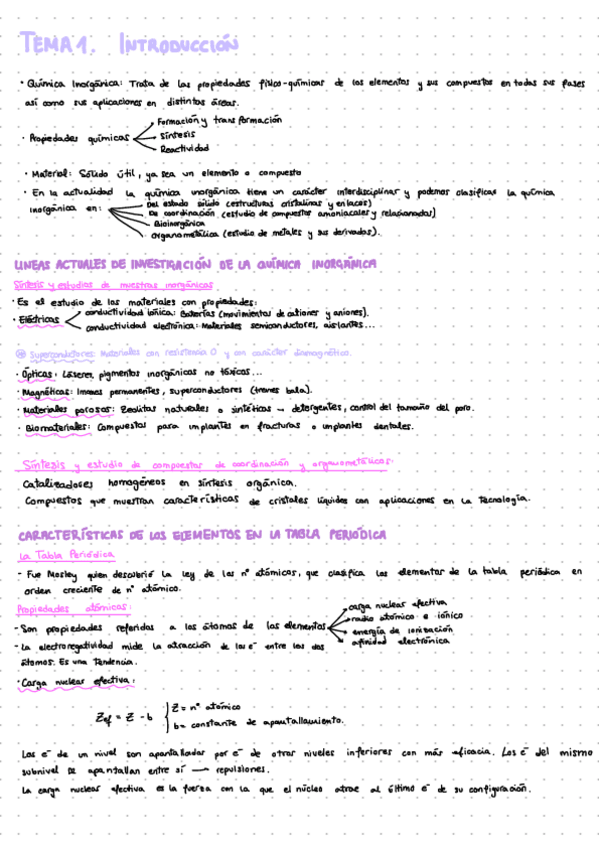 TEMA 1. INTRODUCCIÓN
· Química Inorgánica: Trata de las propiedades físico-químicas de los elementos y sus compuestos en todas sus fases
así como sus aplicaciones en distintas áreas.
· Propiedades químicas
Formación y transformación
Síntesis
Reactividad
· Material: Sólido útil, ya sea un elemento o compuesto
· En la actualidad la química inorgánica tiene un carácter interdisciplinar y podemos clasificar la química
inorgánica en:
Del estado sólido (estructuras cristalinas y enlaces)
De coordinación (estudio de compuestos amoniacales y relacionados)
Bioinorgánica
Organometálica (estudio de metales y sus derivados).
LINEAS ACTUALES DE INVESTIGACIÓN DE LA QUÍMICA INORGÁNICA
Síntesis y estudios de muestras inorgánicas
· Es el estudio de los materiales con propiedades:
· Eléctricas
conductividad iónica: Baterías (movimientos de cationes y aniones).
conductividad electrónica: Materiales semiconductores, aislantes...
Superconductores: Materiales con resistencia 0 y con carácter diamagnético.
· Ópticas: Láseres, pigmentos inorgánicos no tóxicos...
· Magnéticas: Imanes permanentes, superconductores (trenes bala).
· Materiales porosos: Zeolitas naturales o sintéticas → detergentes, control del tamaño del poro.
· Biomateriales: Compuestos para implantes en fracturas o implantes dentales.
Síntesis y estudio de compuestos de coordinación y organometálicos:
Catalizadores homogéneos en síntesis orgánica.
Compuestos que muestran características de cristales líquidos con aplicaciones en la Tecnología.
CARACTERÍSTICAS DE LOS ELEMENTOS EN LA TABLA PERIÓDICA
La Tabla Periódica
- Fue Mosley quien descubrió la ley de los nº atómicos, que clasifica los elementos de la tabla periódica en
orden creciente de nº atómico.
Propiedades atómicas:
- Son propiedades referidas a los átomos de los elementos
carga nuclear efectiva
radio atómico e iónico
energía de ionización
afinidad electrónica
- La electronegatividad mide la atracción de los e⁻ entre los dos
átomos. Es una tendencia.
· Carga nuclear efectiva:
Zef = Z - b
Z = nº atómico
b = constante de apantallamiento.
Los e⁻ de un nivel son apantallados por e⁻ de otros niveles inferiores con más eficacia. Los e⁻ del mismo
subnivel se apantallan entre sí → repulsiones.
La carga nuclear efectiva es la fuerza con la que el núcleo atrae al último e⁻ de su configuración.